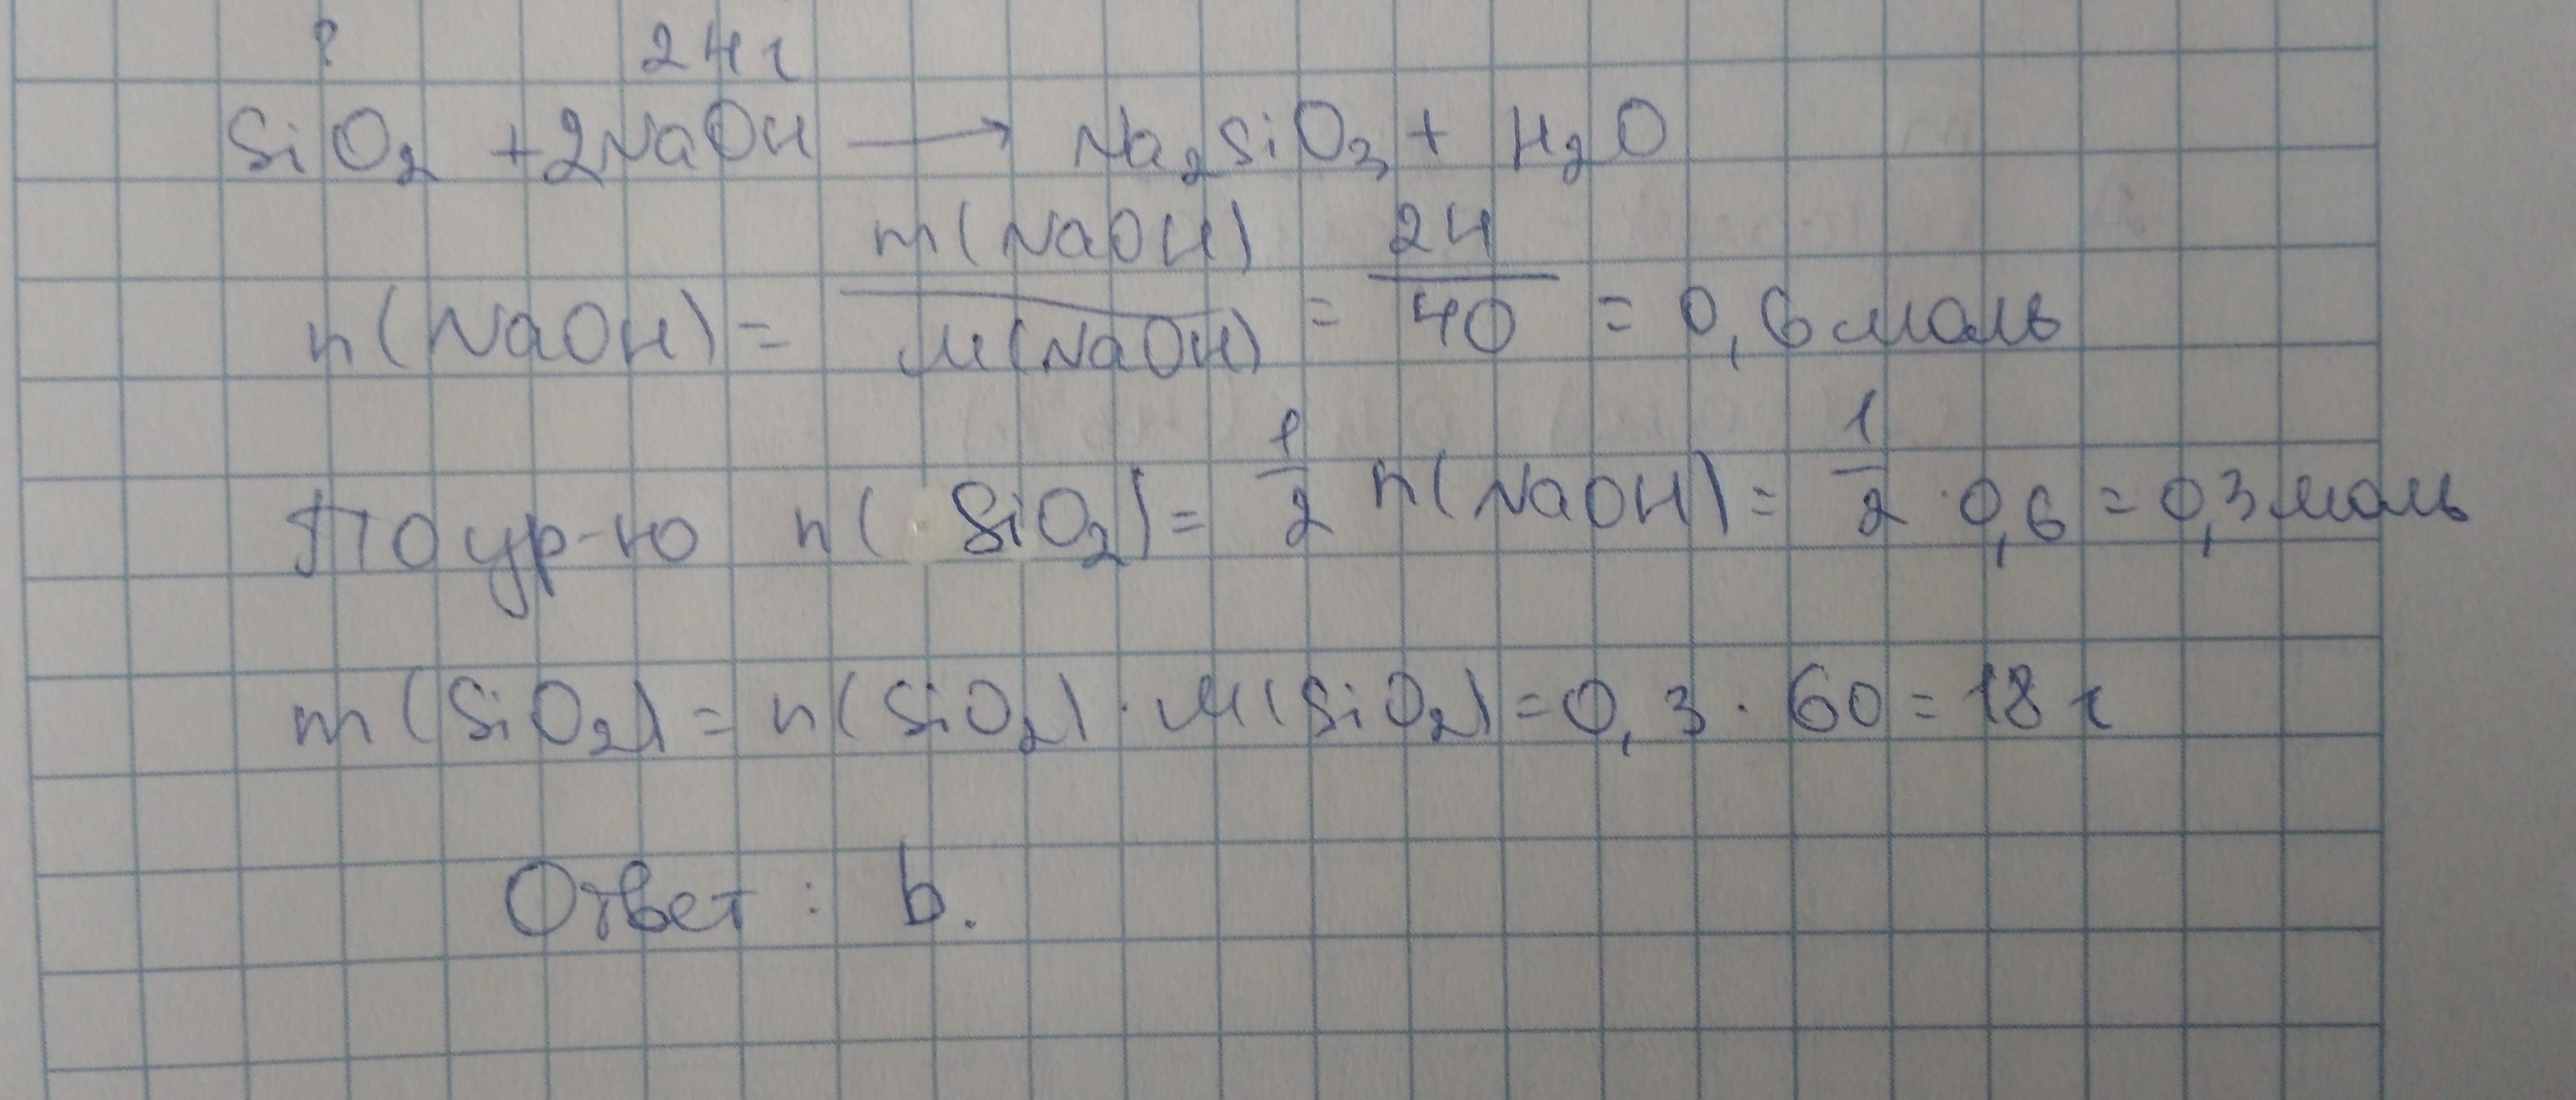 ? 24 г
SiO₂ + 2NaOH → Na₂SiO₃ + H₂O
n(NaOH) = m(NaOH) / M(NaOH) = 24 / 40 = 0,6 моль
По ур-ю n(SiO₂) = 1/2 n(NaOH) = 1/2 · 0,6 = 0,3 моль
m(SiO₂) = n(SiO₂) · M(SiO₂) = 0,3 · 60 = 18 г
Ответ: b.